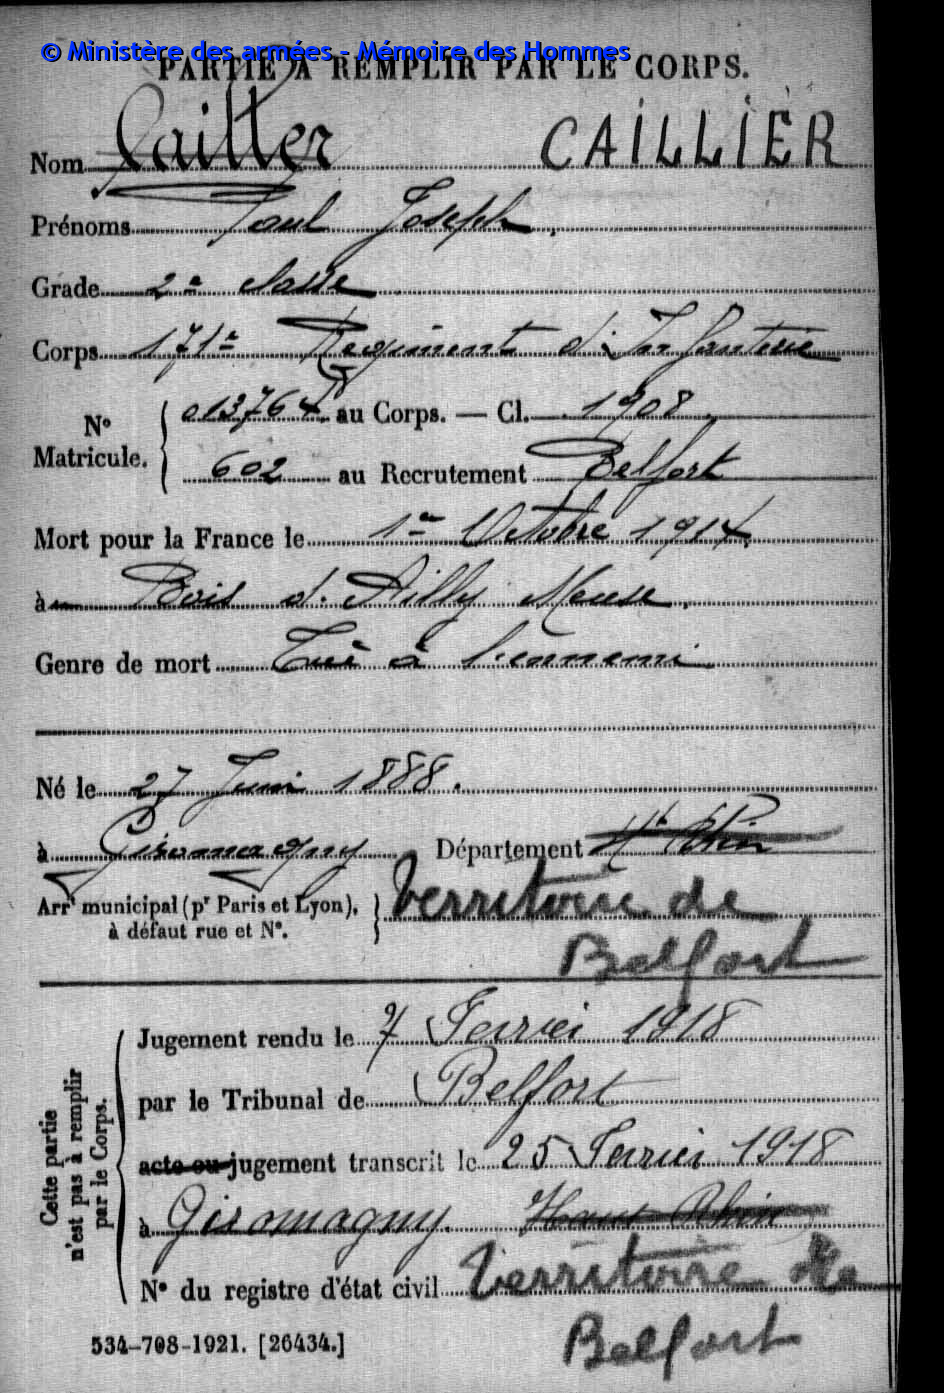 © Ministère des armées - Mémoire des Hommes
PARTIE À REMPLIR PAR LE CORPS.
Nom Caillier CAILLIER
Prénoms Paul Joseph.
Grade 2e classe
Corps 171e Régiment d'Infanterie
N° Matricule. 013764 au Corps. — Cl. 1908.
602 au Recrutement Belfort
Mort pour la France le 1er Octobre 1914.
à Bois d'Ailly Meuse.
Genre de mort Tué à l'ennemi
Né le 27 Juin 1888.
à Giromagny Département Ht Rhin
Arrt municipal (pr Paris et Lyon), à défaut rue et N°. Territoire de
Belfort
Cette partie n'est pas à remplir par le Corps.
Jugement rendu le 7 Fevrier 1918
par le Tribunal de Belfort
acte ou jugement transcrit le 25 Fevrier 1918
à Giromagny. Haut Rhin
N° du registre d'état civil Territoire de
Belfort
534-708-1921. [26434.]